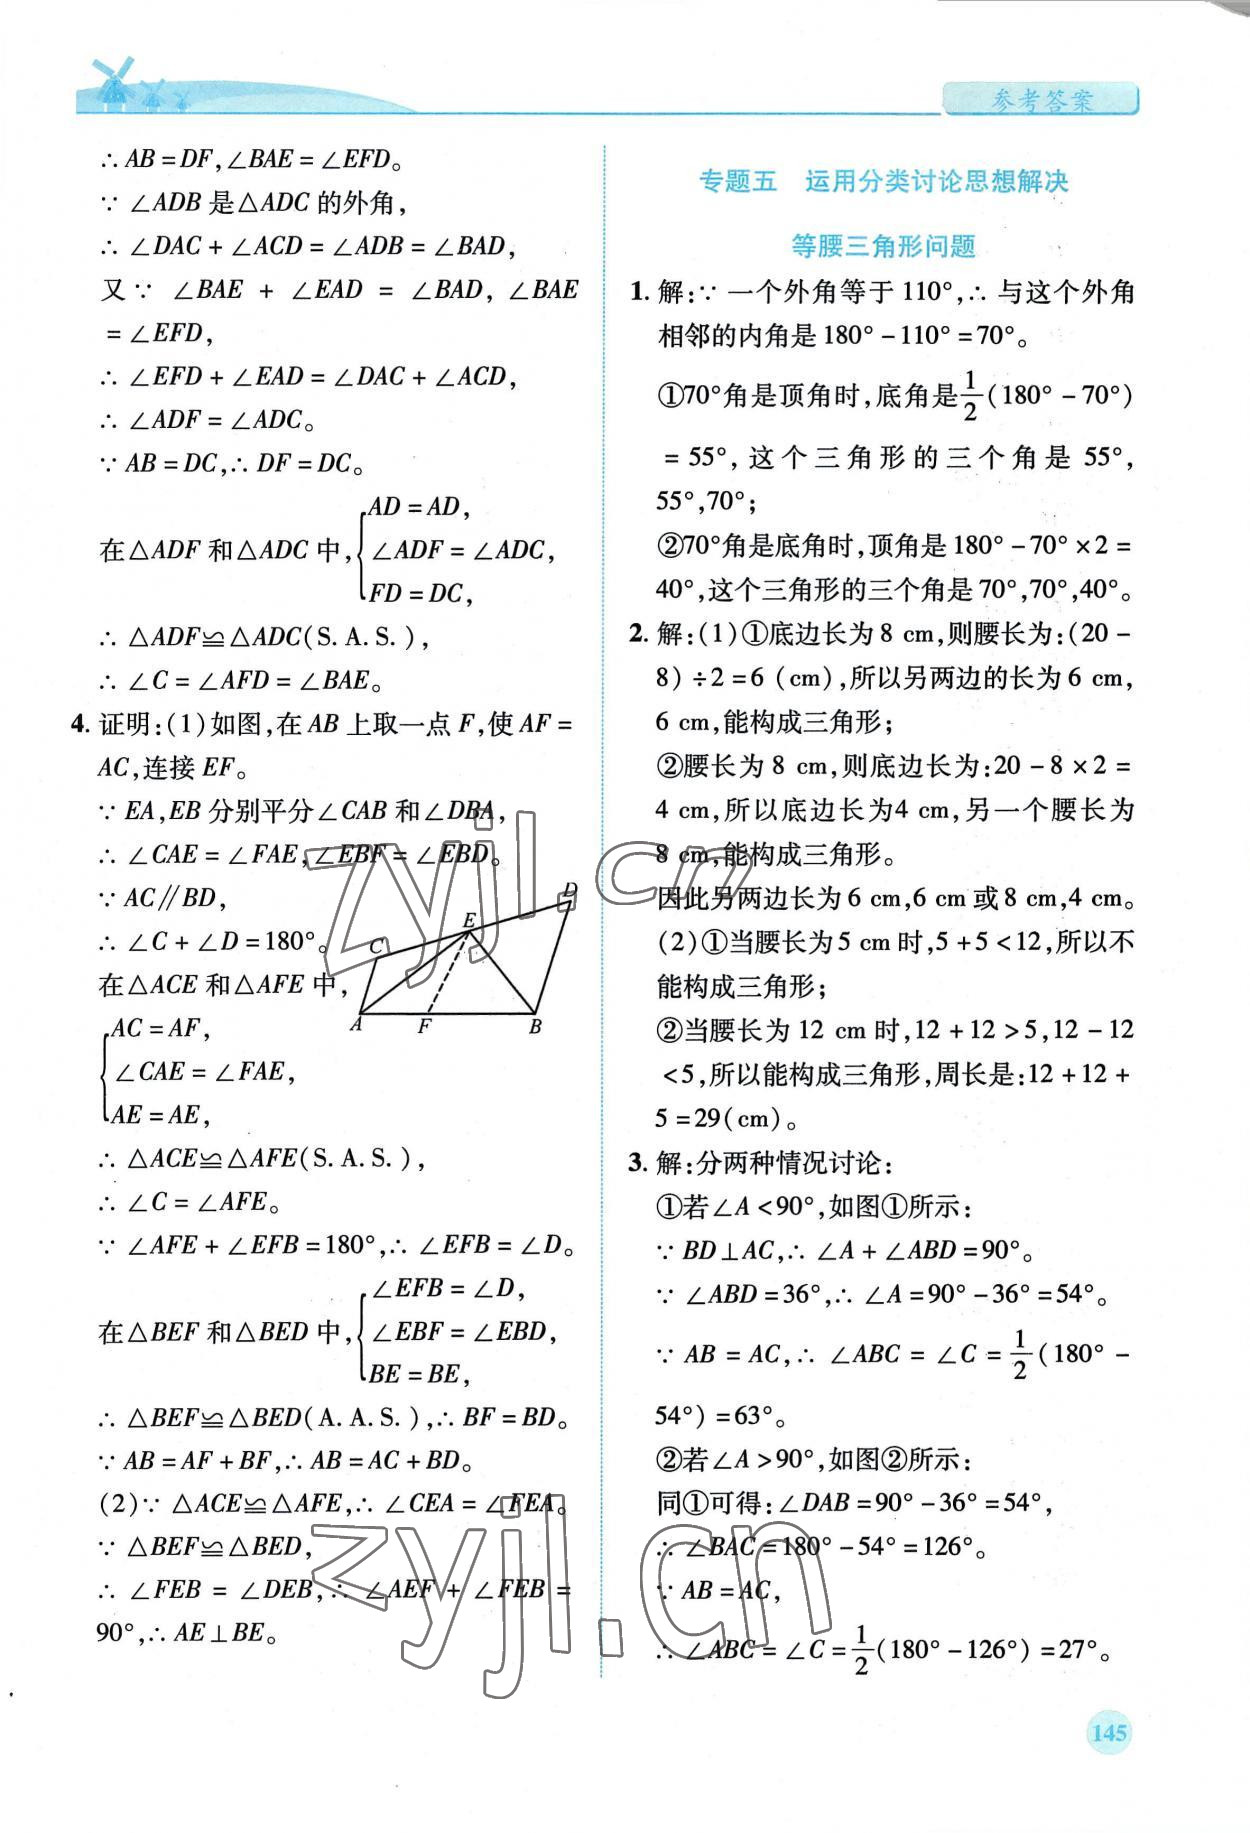 参考答案
∴ AB = DF, ∠BAE = ∠EFD。
∵ ∠ADB 是△ADC 的外角，
∴ ∠DAC + ∠ACD = ∠ADB = ∠BAD，
又∵ ∠BAE + ∠EAD = ∠BAD, ∠BAE
= ∠EFD，
∴ ∠EFD + ∠EAD = ∠DAC + ∠ACD，
∴ ∠ADF = ∠ADC。
∵ AB = DC, ∴ DF = DC。
AD = AD，
在△ADF 和△ADC 中, ∠ADF = ∠ADC，
FD = DC，
∴ △ADF≌△ADC(S. A. S.)，
∴ ∠C = ∠AFD = ∠BAE。
4. 证明：(1)如图,在 AB 上取一点 F,使 AF =
AC,连接 EF。
∵ EA, EB 分别平分∠CAB 和∠DBA，
∴ ∠CAE = ∠FAE, ∠EBF = ∠EBD。
∵ AC∥BD，
∴ ∠C + ∠D = 180°。
在△ACE 和△AFE 中，
AC = AF，
∠CAE = ∠FAE，
AE = AE，
D
E
C
A F B
∴ △ACE≌△AFE(S. A. S.)，
∴ ∠C = ∠AFE。
∵ ∠AFE + ∠EFB = 180°, ∴ ∠EFB = ∠D。
∠EFB = ∠D，
在△BEF 和△BED 中, ∠EBF = ∠EBD，
BE = BE，
∴ △BEF≌△BED(A. A. S.), ∴ BF = BD。
∵ AB = AF + BF, ∴ AB = AC + BD。
(2)∵ △ACE≌△AFE, ∴ ∠CEA = ∠FEA。
∵ △BEF≌△BED，
∴ ∠FEB = ∠DEB, ∴ ∠AEF + ∠FEB =
90°, ∴ AE⊥BE。
专题五 运用分类讨论思想解决
等腰三角形问题
1. 解：∵ 一个外角等于 110°, ∴ 与这个外角
相邻的内角是 180° - 110° = 70°。
①70°角是顶角时,底角是 1/2 (180° - 70°)
= 55°, 这个三角形的三个角是 55°，
55°, 70°；
②70°角是底角时,顶角是 180° - 70° × 2 =
40°,这个三角形的三个角是 70°, 70°, 40°。
2. 解：(1)①底边长为 8 cm,则腰长为：(20 -
8) ÷ 2 = 6 (cm),所以另两边的长为 6 cm，
6 cm,能构成三角形；
②腰长为 8 cm,则底边长为：20 - 8 × 2 =
4 cm,所以底边长为4 cm,另一个腰长为
8 cm,能构成三角形。
因此另两边长为 6 cm, 6 cm 或 8 cm, 4 cm。
(2)①当腰长为 5 cm 时, 5 + 5 < 12,所以不
能构成三角形；
②当腰长为 12 cm 时, 12 + 12 > 5, 12 - 12
< 5,所以能构成三角形,周长是：12 + 12 +
5 = 29(cm)。
3. 解：分两种情况讨论：
①若∠A < 90°,如图①所示：
∵ BD⊥AC, ∴ ∠A + ∠ABD = 90°。
∵ ∠ABD = 36°, ∴ ∠A = 90° - 36° = 54°。
∵ AB = AC, ∴ ∠ABC = ∠C = 1/2 (180° -
54°) = 63°。
②若∠A > 90°,如图②所示：
同①可得：∠DAB = 90° - 36° = 54°，
∴ ∠BAC = 180° - 54° = 126°。
∵ AB = AC，
∴ ∠ABC = ∠C = 1/2 (180° - 126°) = 27°。
145
zyjl.cn
zyjl.cn